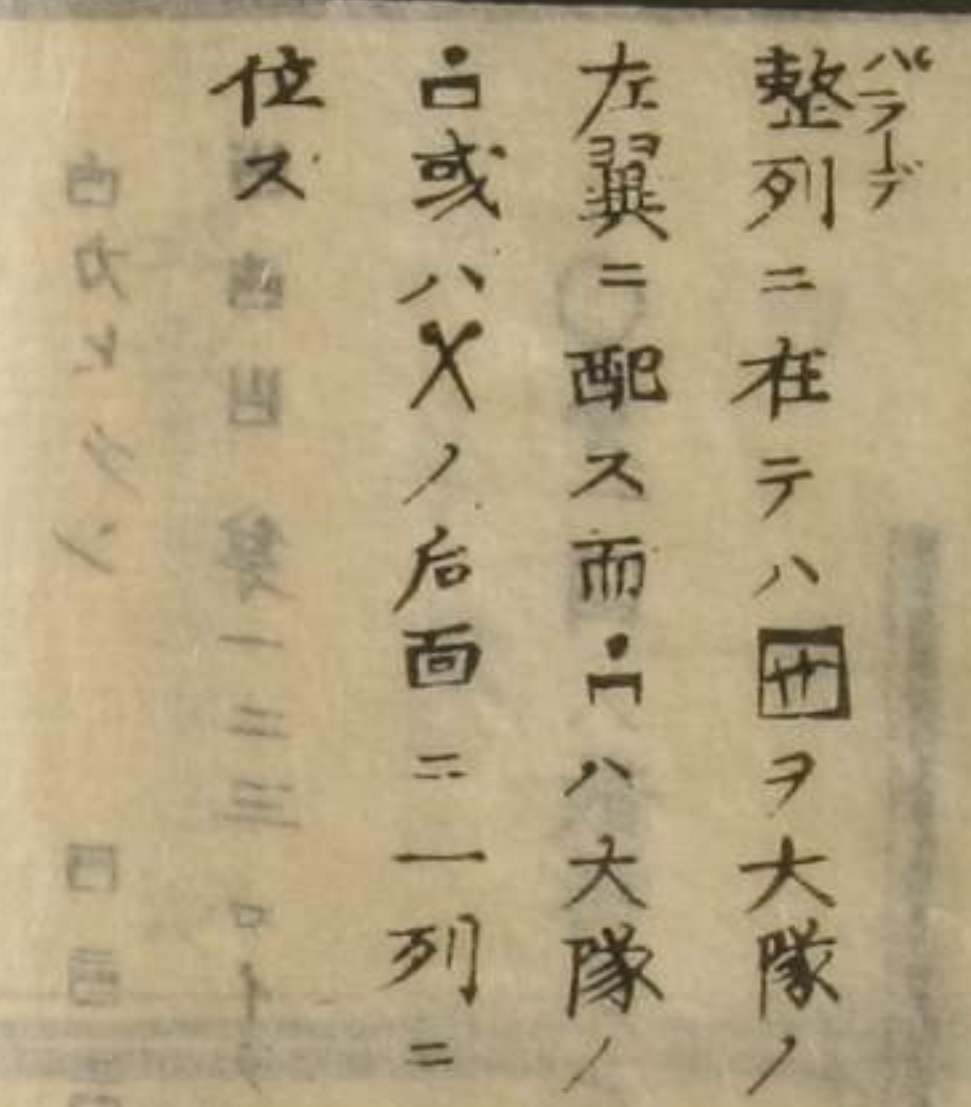 パラーデ
整列ニ在テハ卌ヲ大隊ノ
左翼ニ配ス而ハ大隊ノ
或ハノ后面ニ一列ニ
位ス